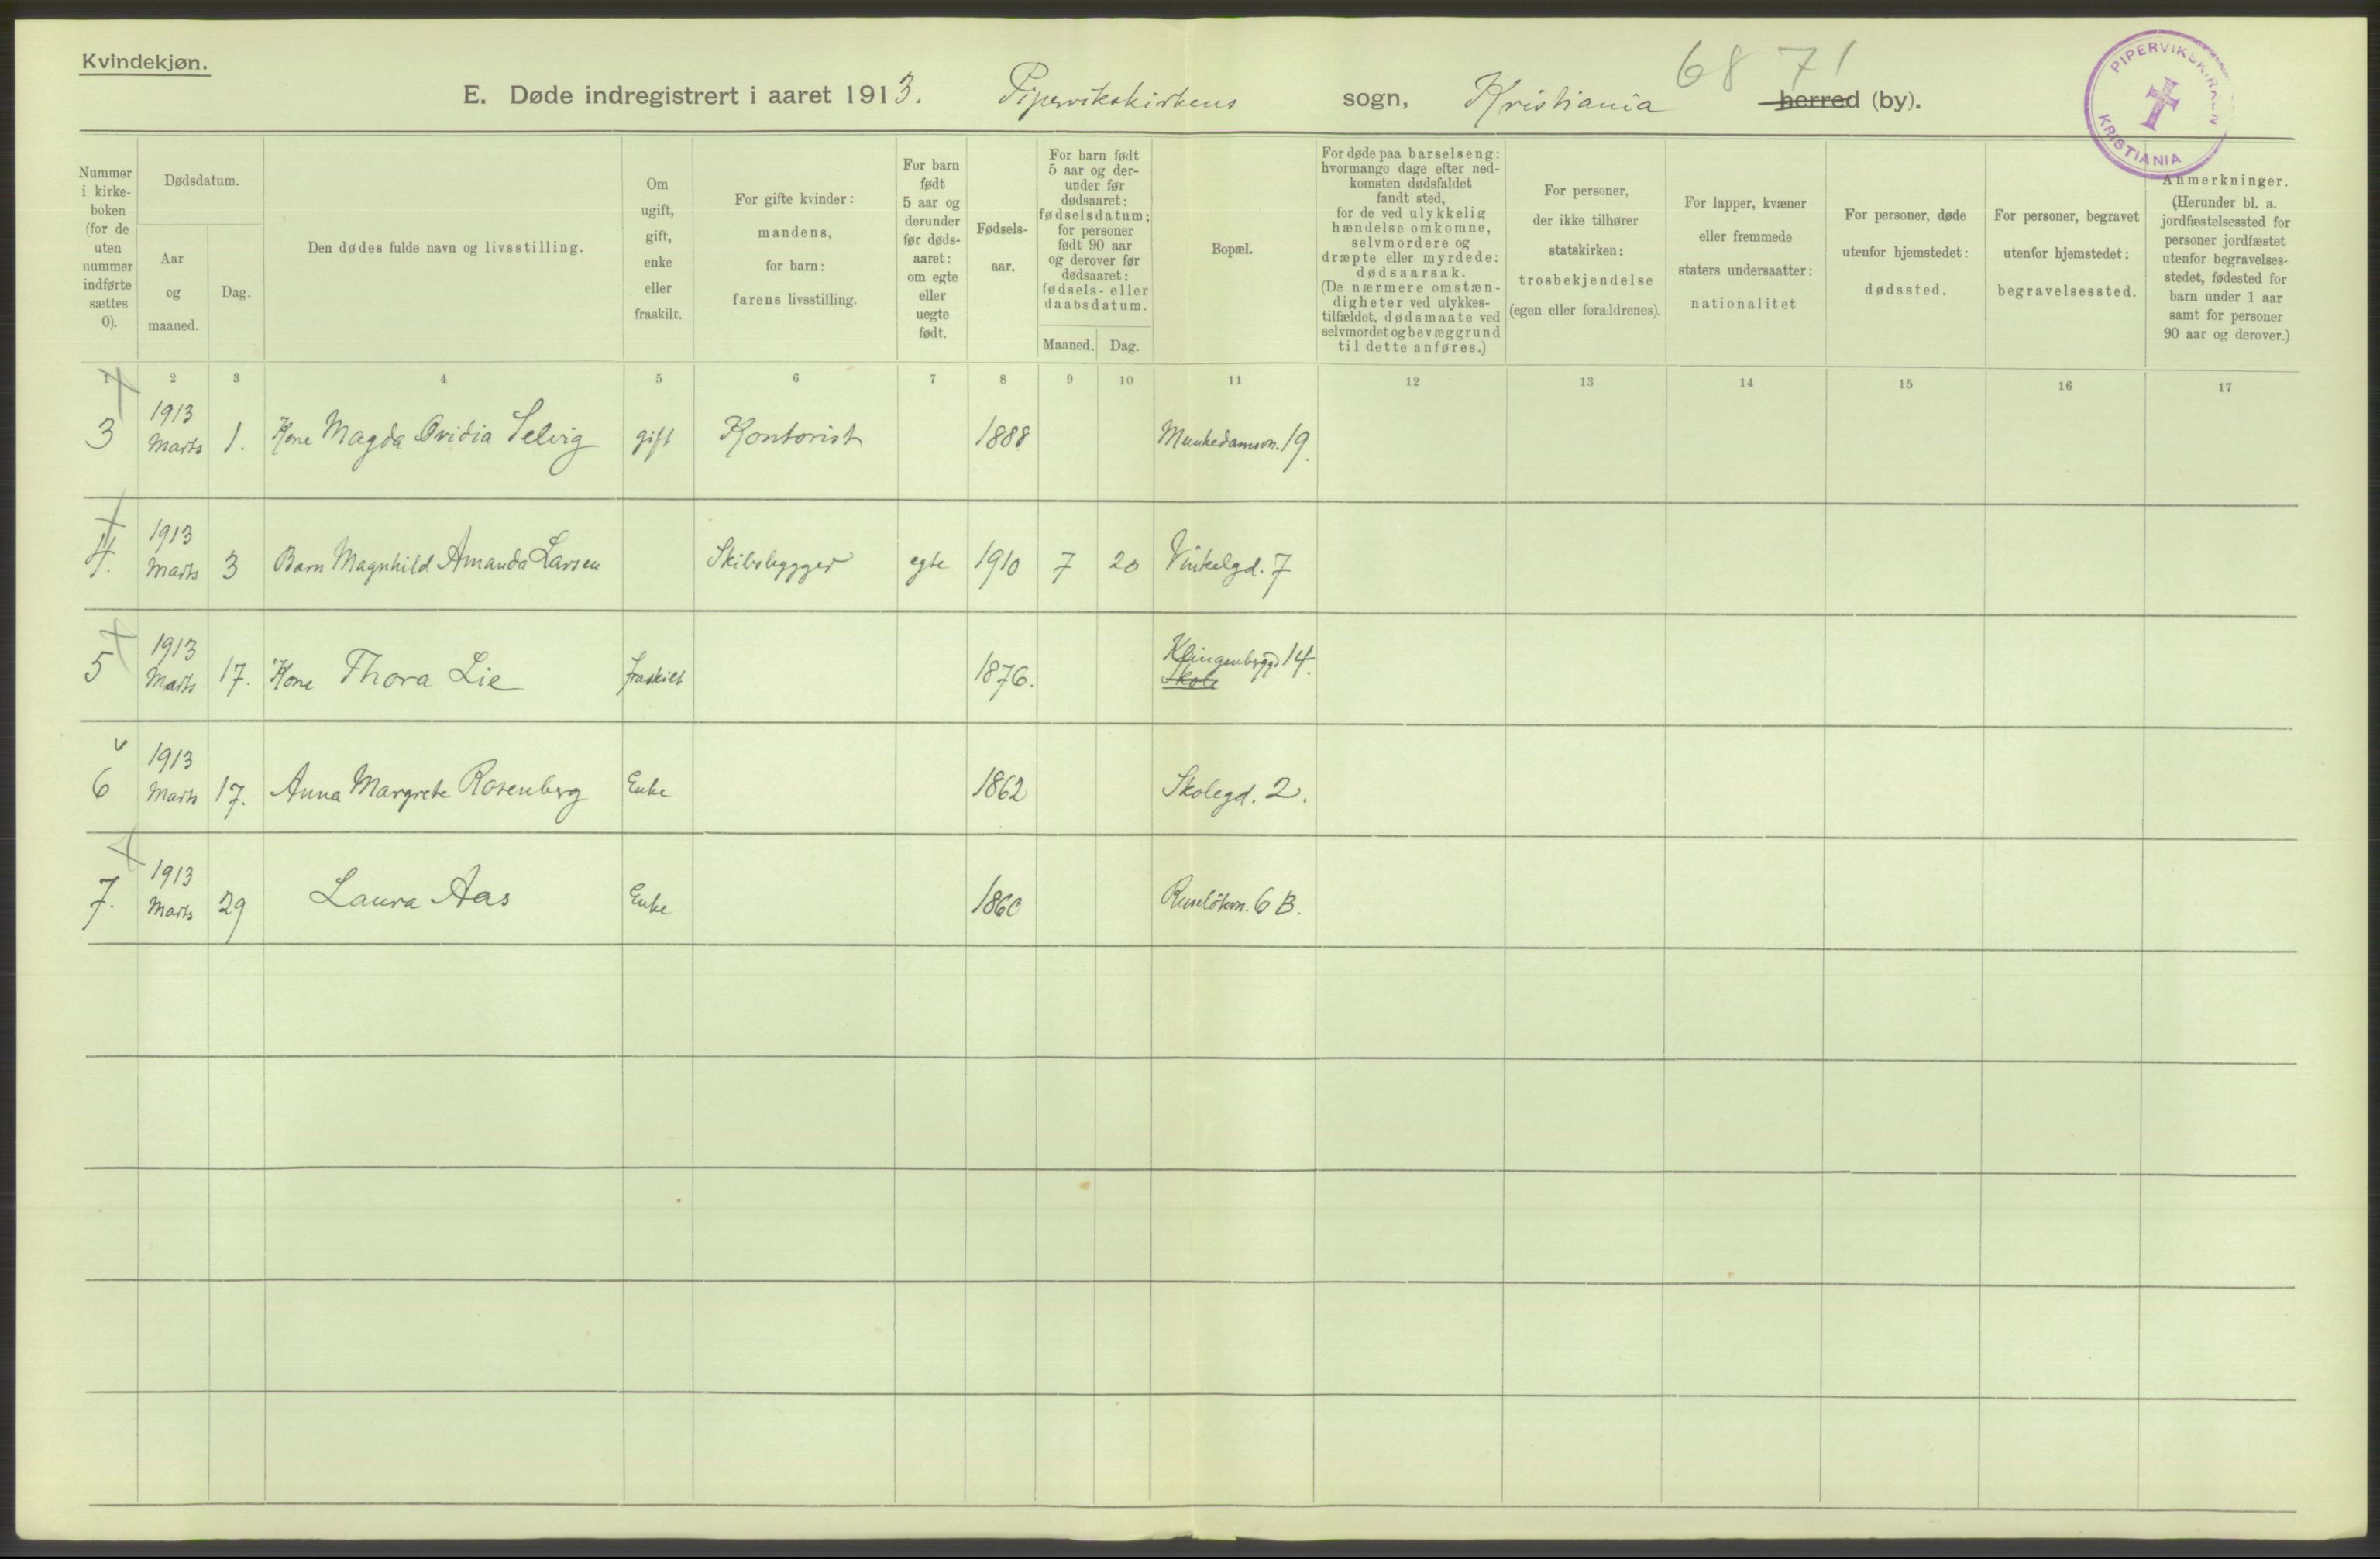 Kvindekjøn.
68 71
E. Døde indregistrert i aaret 1913. Pipervikskirkens sogn, Kristiania herred (by).
PIPERVIKSKIRKEN KRISTIANIA
Nummer
i kirke-
boken
(for de
uten
nummer
indførte
sættes
0).
Dødsdatum.
Aar
og
maaned.
Dag.
Den dødes fulde navn og livsstilling.
Om
ugift,
gift,
enke
eller
fraskilt.
For gifte kvinder:
mandens,
for barn:
farens livsstilling.
For barn
født
5 aar og
derunder
før døds-
aaret:
om egte
eller
uegte
født.
Fødsels-
aar.
For barn født
5 aar og der-
under før
dødsaaret:
fødselsdatum;
for personer
født 90 aar
og derover før
dødsaaret:
fødsels- eller
daabsdatum.
Maaned. Dag.
Bopæl.
For døde paa barselseng:
hvormange dage efter ned-
komsten dødsfaldet
fandt sted,
for de ved ulykkelig
hændelse omkomne,
selvmordere og
dræpte eller myrdede:
dødsaarsak.
(De nærmere omstæn-
digheter ved ulykkes-
tilfældet, dødsmaate ved
selvmordet og bevæggrund
til dette anføres.)
For personer,
der ikke tilhører
statskirken:
trosbekjendelse
(egen eller forældrenes).
For lapper, kvæner
eller fremmede
staters undersaatter:
nationalitet
For personer, døde
utenfor hjemstedet:
dødssted.
For personer, begravet
utenfor hjemstedet:
begravelsessted.
Anmerkninger.
(Herunder bl. a.
jordfæstelsessted for
personer jordfæstet
utenfor begravelses-
stedet, fødested for
barn under 1 aar
samt for personer
90 aar og derover.)
1 2 3 4 5 6 7 8 9 10 11 12 13 14 15 16 17
1913
3 Marts 1. Kone Magda Ovidia Selvig gift Kontorist 1888 Munkedamsvn. 19.
1913
4. Marts 3 Barn Magnhild Amanda Larsen Skibsbygger egte 1910 7 20 Vinkelgd. 7
1913
5 Marts 17. Kone Thora Lie fraskilt 1876. Klingenbggd 14.
Skole
1913
6 Marts 17. Anna Margrete Rosenberg Enke 1862 Skolegd. 2.
1913
7. Marts 29 Laura Aas Enke 1860 Ruseløkvn. 6 B.